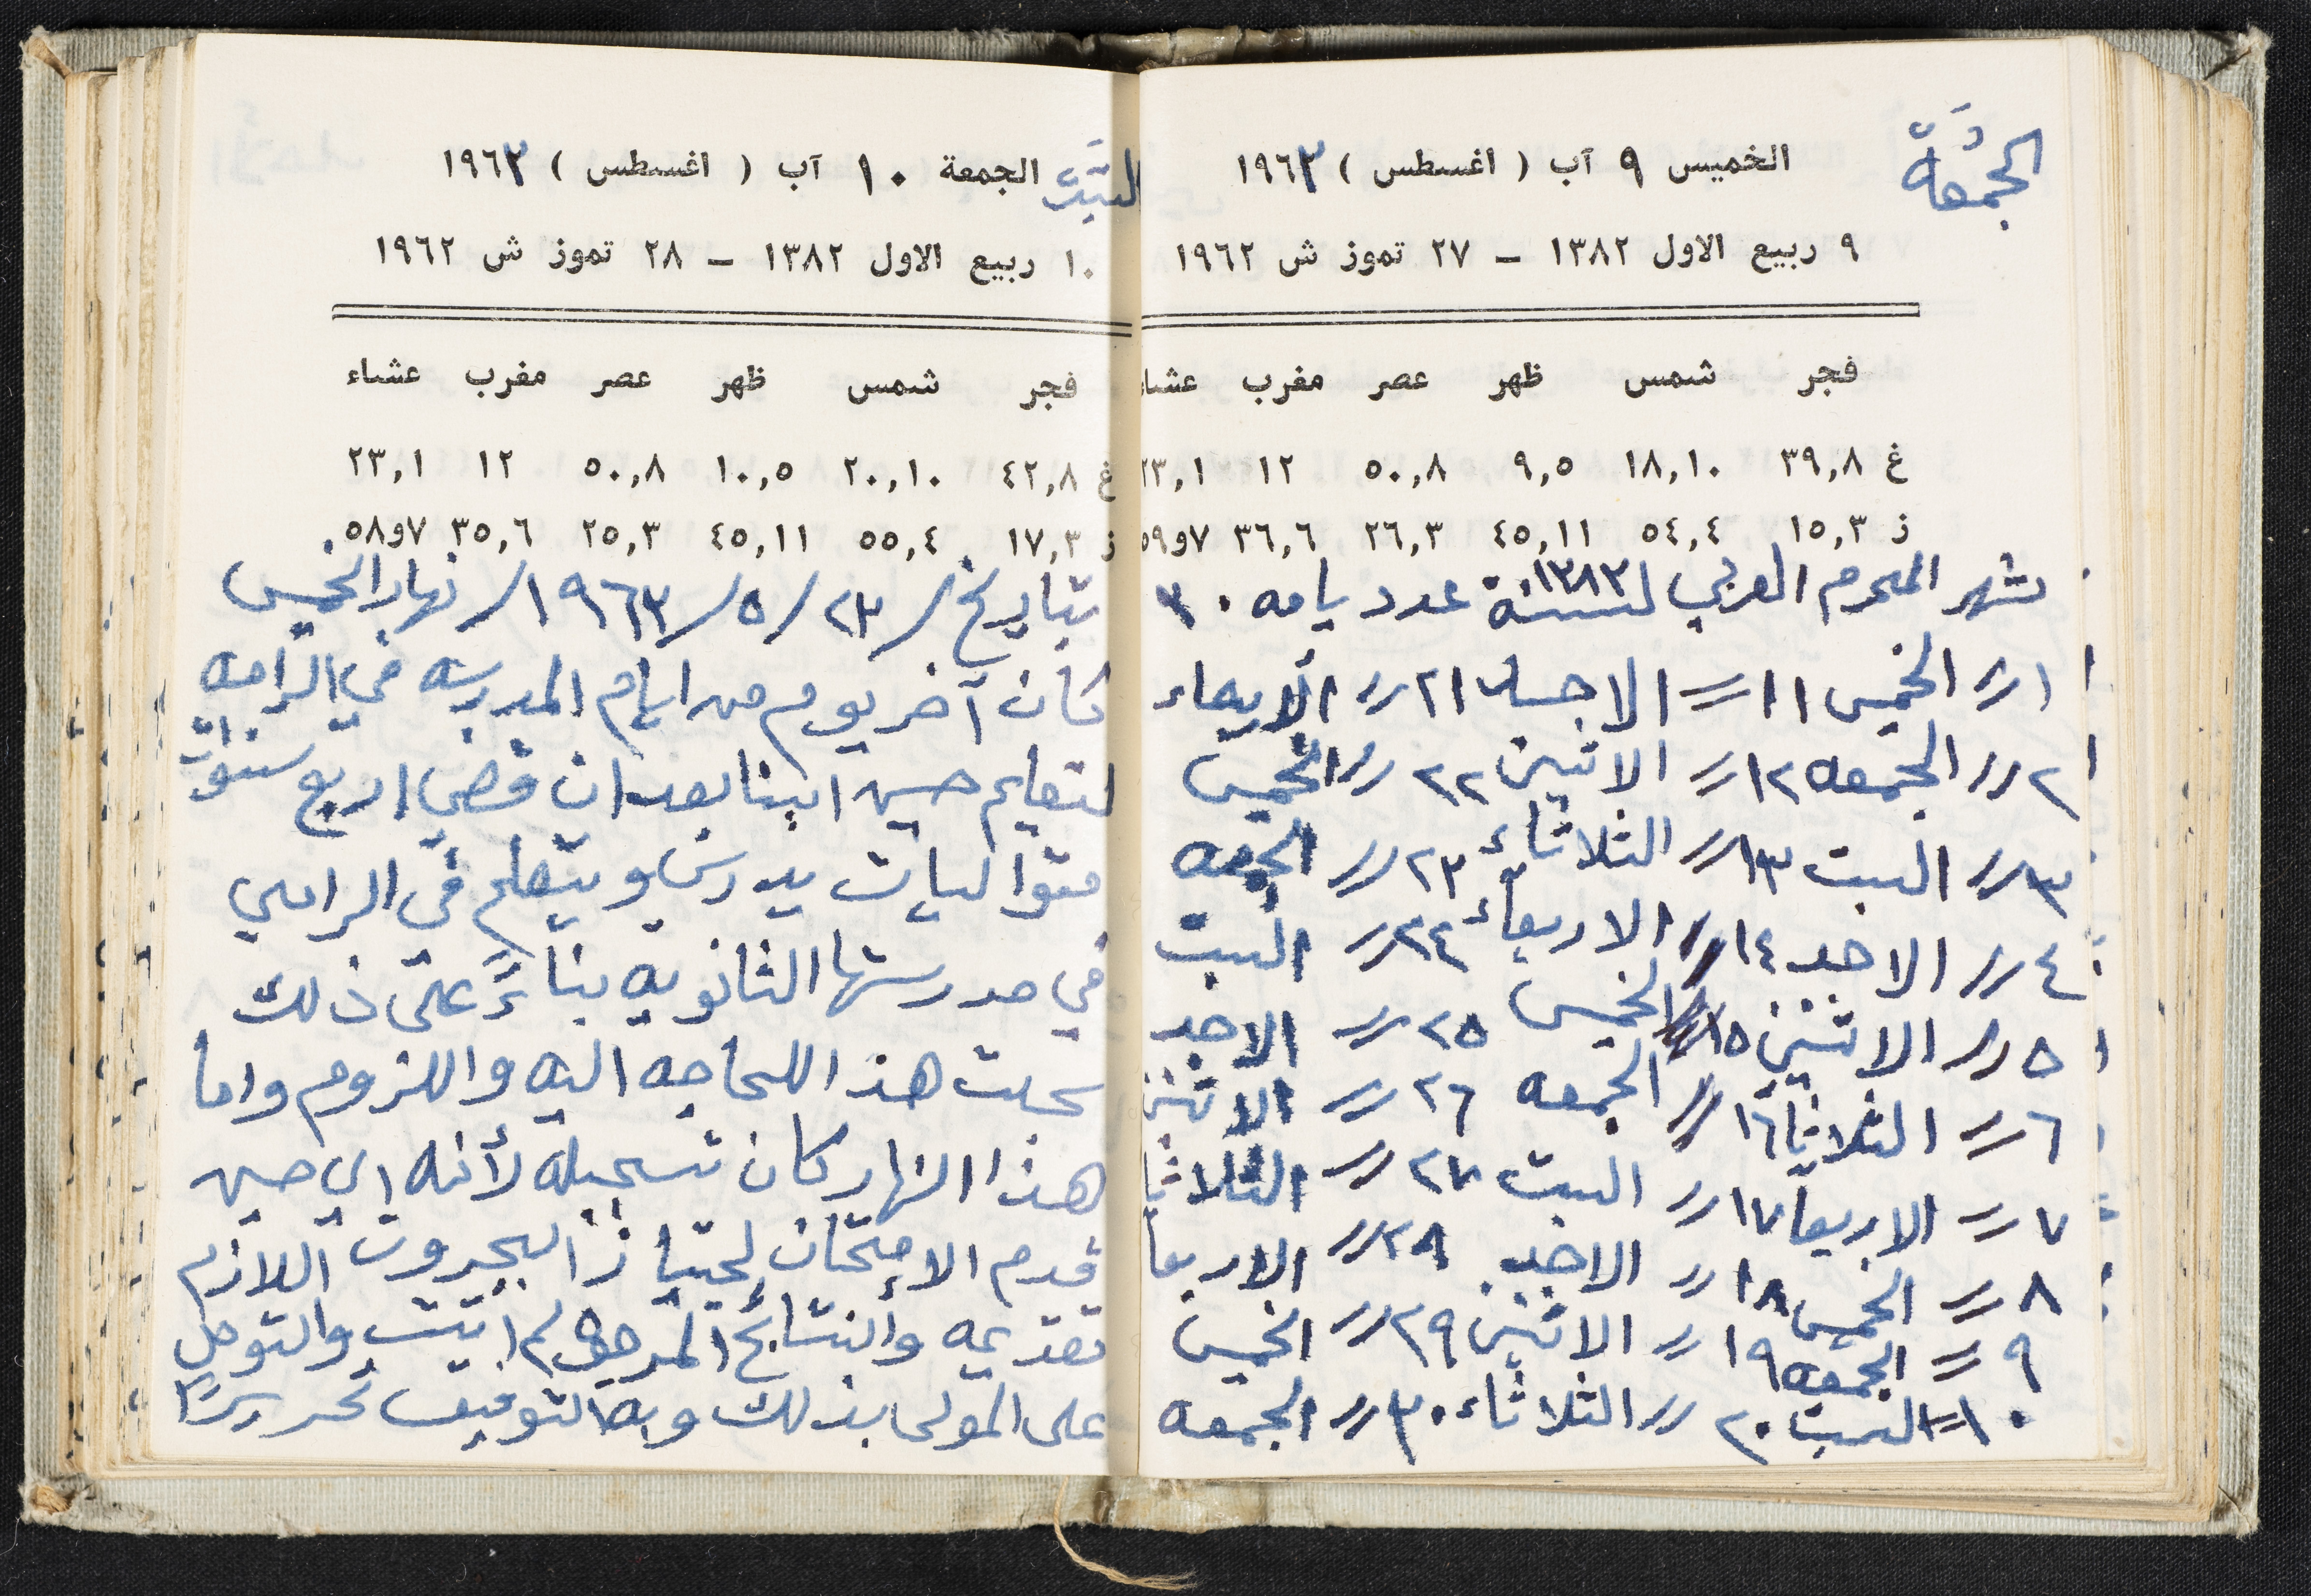 الجمُعَةَ
الخميس ٩ آب ( اغسطس ) ١٩٦٣
٩ ربيع الاول ١٣٨٢ – ٢٧ تموز ش ١٩٦٢
فجر شمس ظهر عصر مغرب عشاء
غ ٣٩,٨ ١٨,١٠ ٩,٥ ٥٠,٨ ١٢ ٢٣,١
ز ١٥,٣ ٥٤,٤ ٤٥,١١ ٢٦,٣ ٣٦,٦ ٧و٥٩
شهر المحرم العربي لسنة ١٣٨٣ عدد يامه ٣٠
١ // الخميس ١١ // الاحد ٢١ // الأربعاء
٢ // الجمعه ١٢ // الاثنين ٢٢ // الخميس
٣ // السبت ١٣ // الثلاثاء ٢٣ // الجمعه
٤ // الاحد ١٤ // الاربعاء ٢٤ // السبت
٥ // الاثنين ١٥ // الخميس ٢٥ // الاحد
٦ // الثلاثا ١٦ // الجمعه ٢٦ // الاثنين
٧ // الاربعا ١٧ // السبت ٢٧ // الثلاثا
٨ // الخميس ١٨ // الاحد ٢٨ // الاربعا
٩ // الجمعه ١٩ // الاثنين ٢٩ // الخميس
١٠ // السبت ٢٠ // الثلاثاء ٣٠ // الجمعه
السَبت الجمعة ١٠ آب ( اغسطس ) ١٩٦٣
١٠ ربيع الاول ١٣٨٢ – ٢٨ تموز ش ١٩٦٢
فجر شمس ظهر عصر مغرب عشاء
غ ٤٢,٨ ٢٠,١٠ ١٠,٥ ٥٠,٨ ١٢ ٢٣,١
ز ١٧,٣ ٥٥,٤ ٤٥,١١ ٢٥,٣ ٣٥,٦ ٧و٥٨
بتاريخ / ٢٣ / ٥ / ١٩٦٣ / نهار الخميس
كان آخر يوم من ايام المدرسه في الرامه
لتعليم حسين ابننا بعد ان قضى اربع سنوات
متواليات يدرس ويتعلم في الرامي
في مدرستها الثانويه بناءً على ذلك
سجلت هذا للحاجه اليه واللزوم واما
هذا النهار كان تسجيله لأنه اي حسين
قدم الامتحان لجتياز البجروت اللازم
تقديمه والنتائج المرجوه لم اتيت والتوكل
على المولى بذلك وبه التوفيق تحريرًا